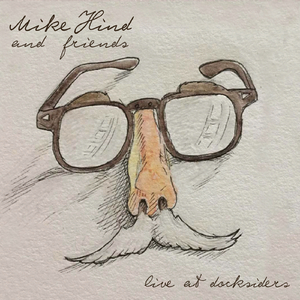 Mike Hind
and friends
live at docksiders